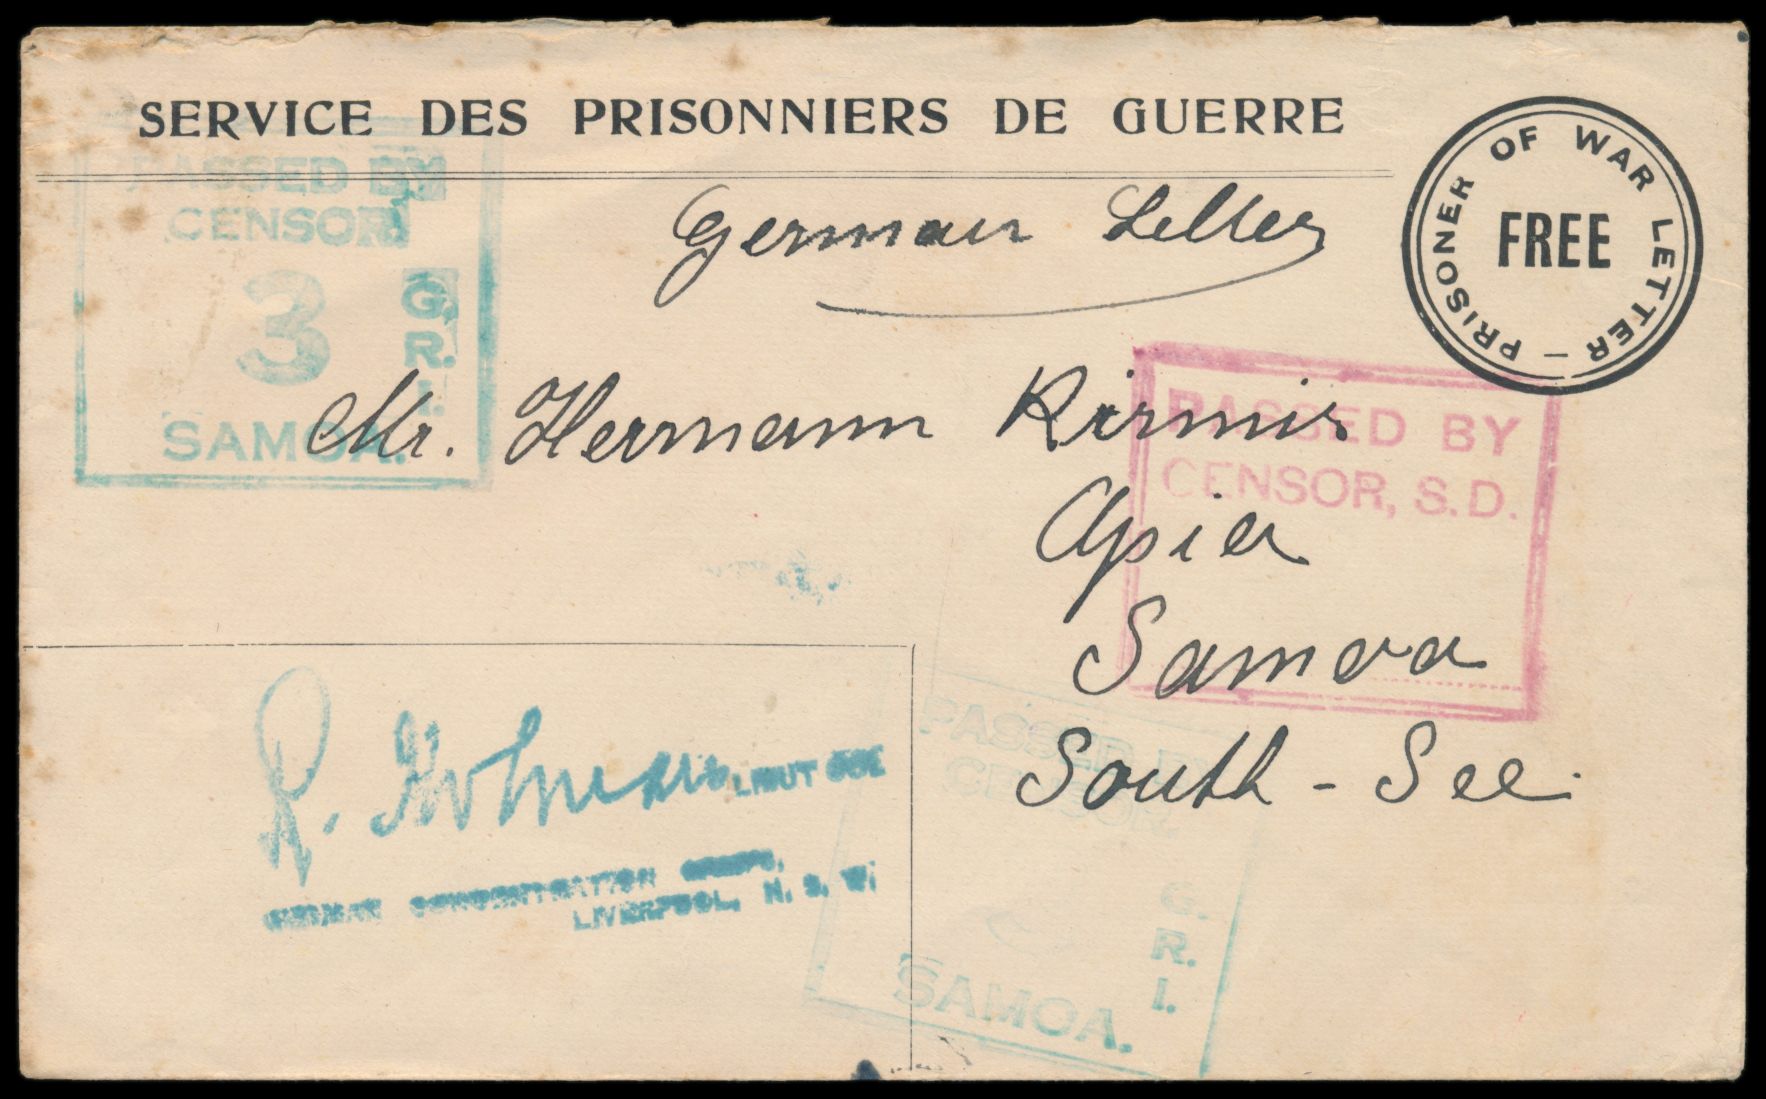 SERVICE DES PRISONNIERS DE GUERRE
PRISONER OF WAR LETTER –
FREE
PASSED BY
CENSOR
3
G.
R.
I.
SAMOA.
German Letter
Mr. Hermann Kirmis
Apia
Samoa
South - See.
PASSED BY
CENSOR, S.D.
R. Holman
LIEUT COL
GERMAN CONCENTRATION CAMPS,
LIVERPOOL, N. S. W.
PASSED BY
CENSOR.
G.
R.
I.
SAMOA.